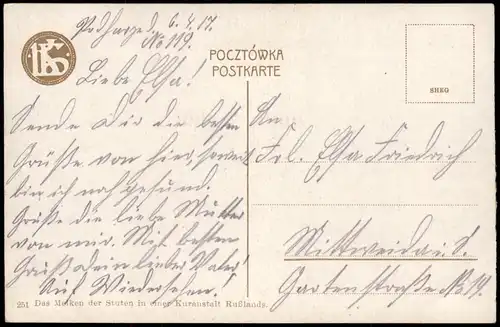 6.4.17.
No 119.
POCZTÓWKA
POSTKARTE
SHEQ
Liebe Elsa!
Sende Dir die besten
Grüße von hier, soweit
bin ich noch gesund.
Grüße die liebe Mutter
von mir. Mit besten
Gruß Dein lieber Vater!
Auf Wiedersehen!
An
Frl. Elsa Friedrich
Mittweida i. S.
Gartenstraße No 19.
251 Das Melken der Stuten in einer Kuranstalt Rußlands.